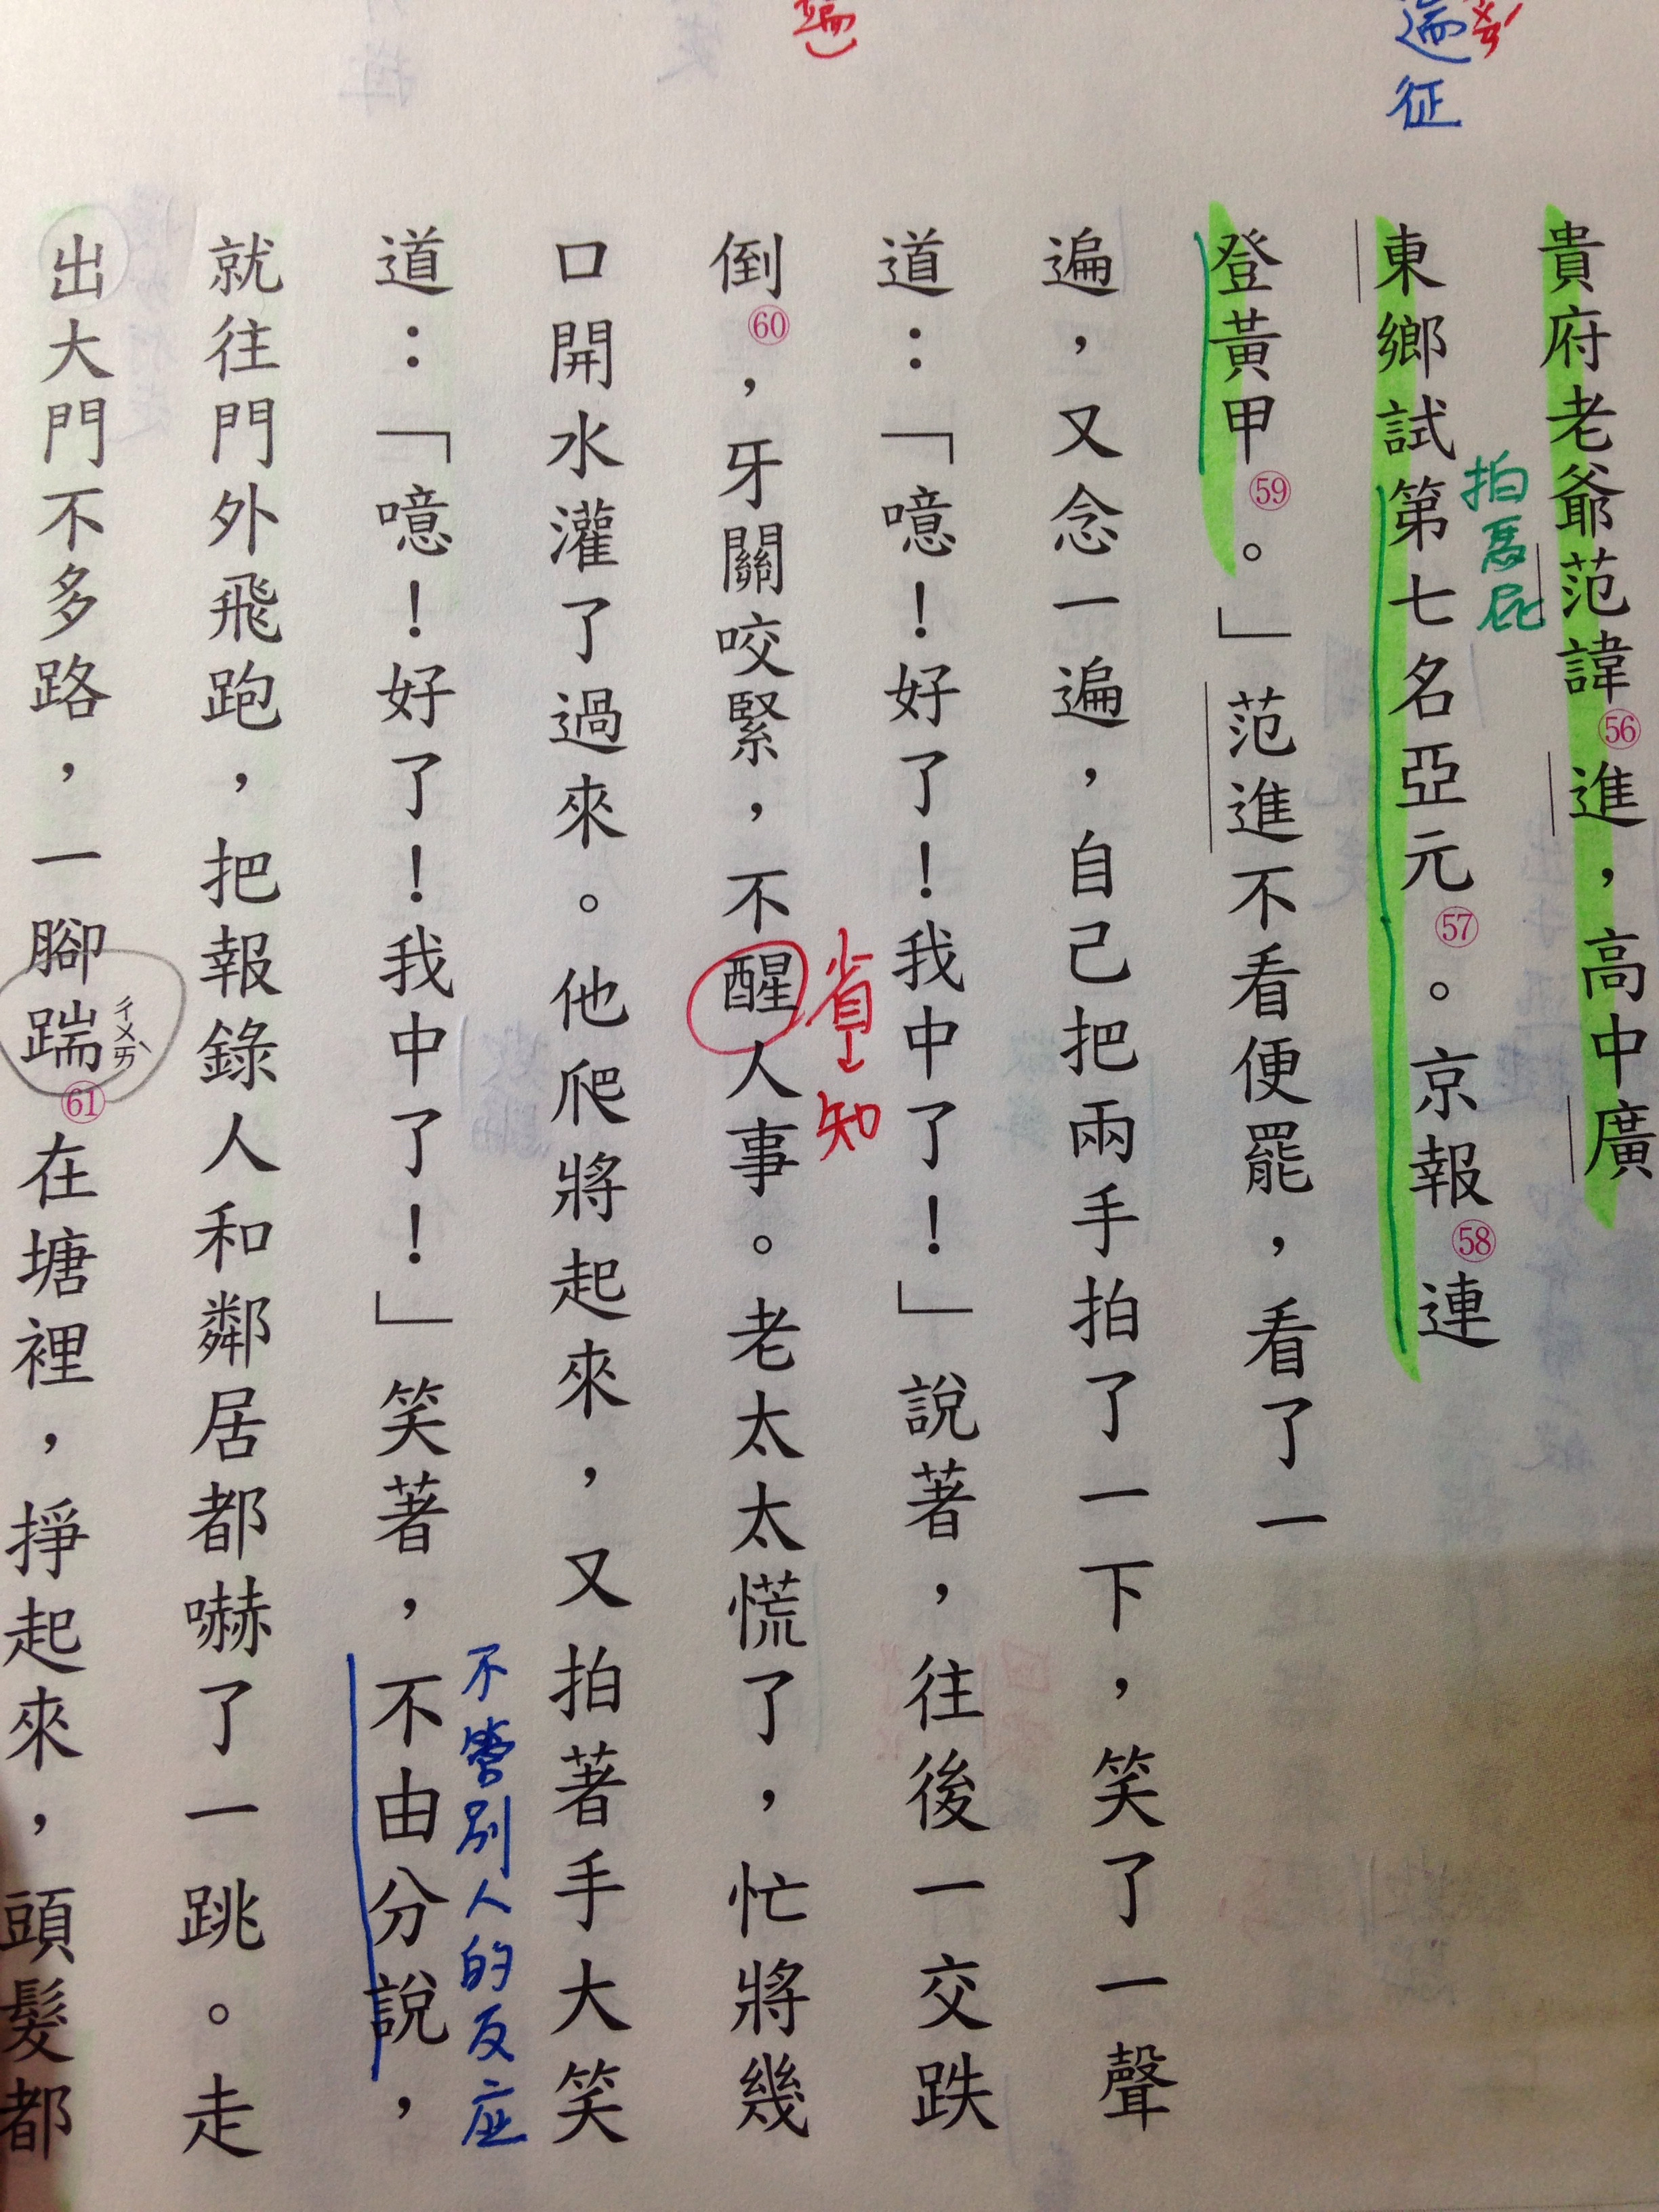 征
貴府老爺范諱㊶進，高中廣
拍馬屁
東鄉試第七名亞元㊼。京報㊽連
登黃甲㊾。」范進不看便罷，看了一
遍，又念一遍，自己把兩手拍了一下，笑了一聲
道：「噫！好了！我中了！」說著，往後一交跌
省→知
倒60，牙關咬緊，不醒人事。老太太慌了，忙將幾
口開水灌了過來。他爬將起來，又拍著手大笑
不管別人的反应
道：「噫！好了！我中了！」笑著，不由分說，
就往門外飛跑，把報錄人和鄰居都嚇了一跳。走
出大門不多路，一腳踹ㄔㄨㄞˋ61在塘裡，掙起來，頭髮都